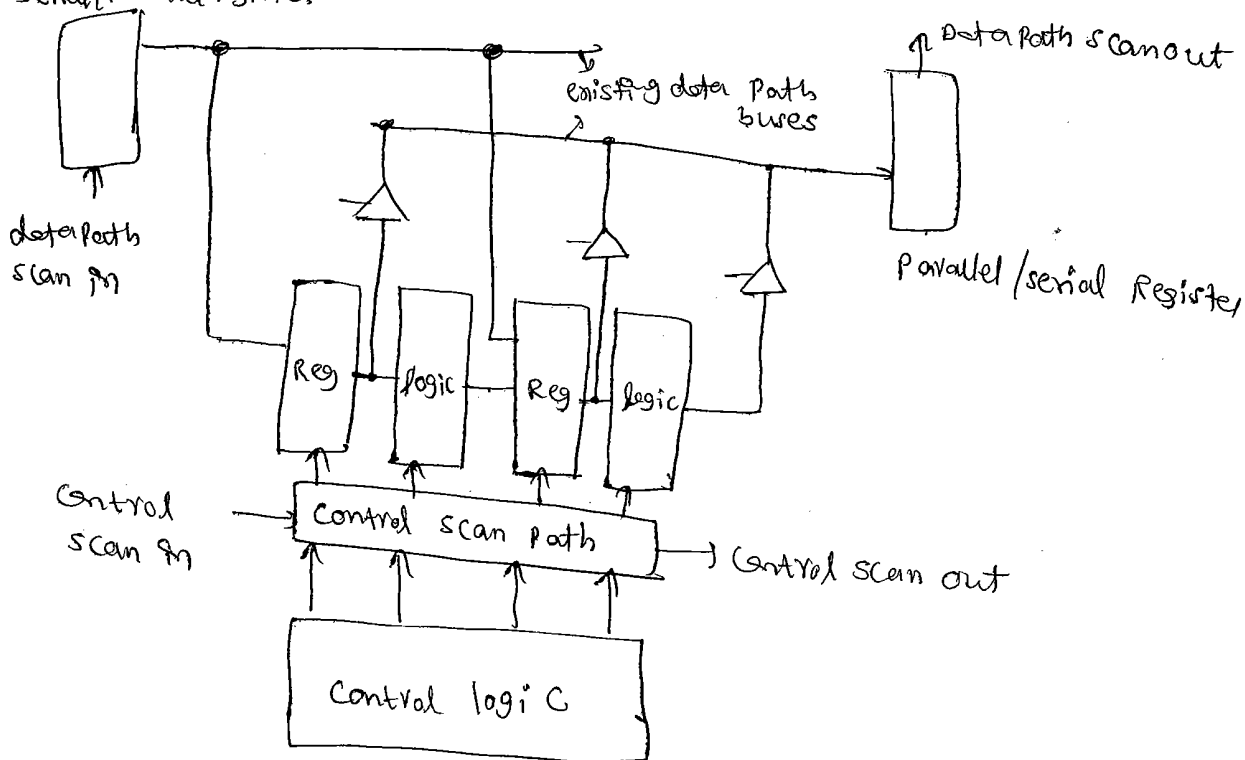 Data Path scan out
existing data Path
buses
data Path
scan in
Parallel/serial Register
Reg
logic
Reg
logic
Control
scan in
Control scan Path
Control scan out
Control logic